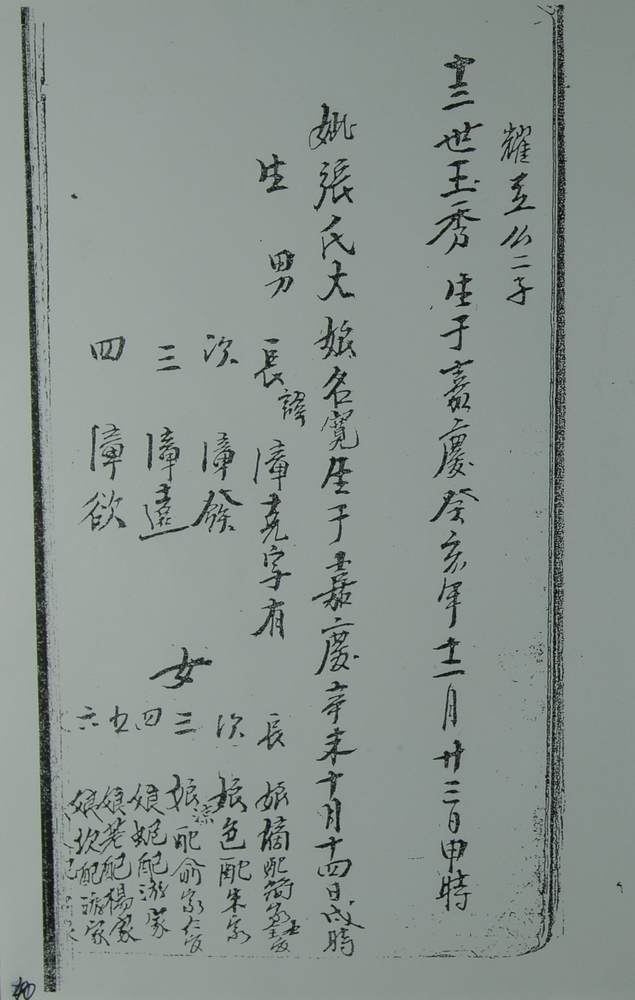 耀立公二子
十三世玉秀生于嘉慶癸亥年十二月廿三日申時
妣張氏大娘名寬生于嘉慶辛未十月十四日戌時
生男
長諱漳堯字有
次漳發
三漳遠
四漳欲
女
長娘摛配簡家
次娘色配朱家
三娘配俞家
四娘妮配游家
五娘若配楊家
六娘坎配游家